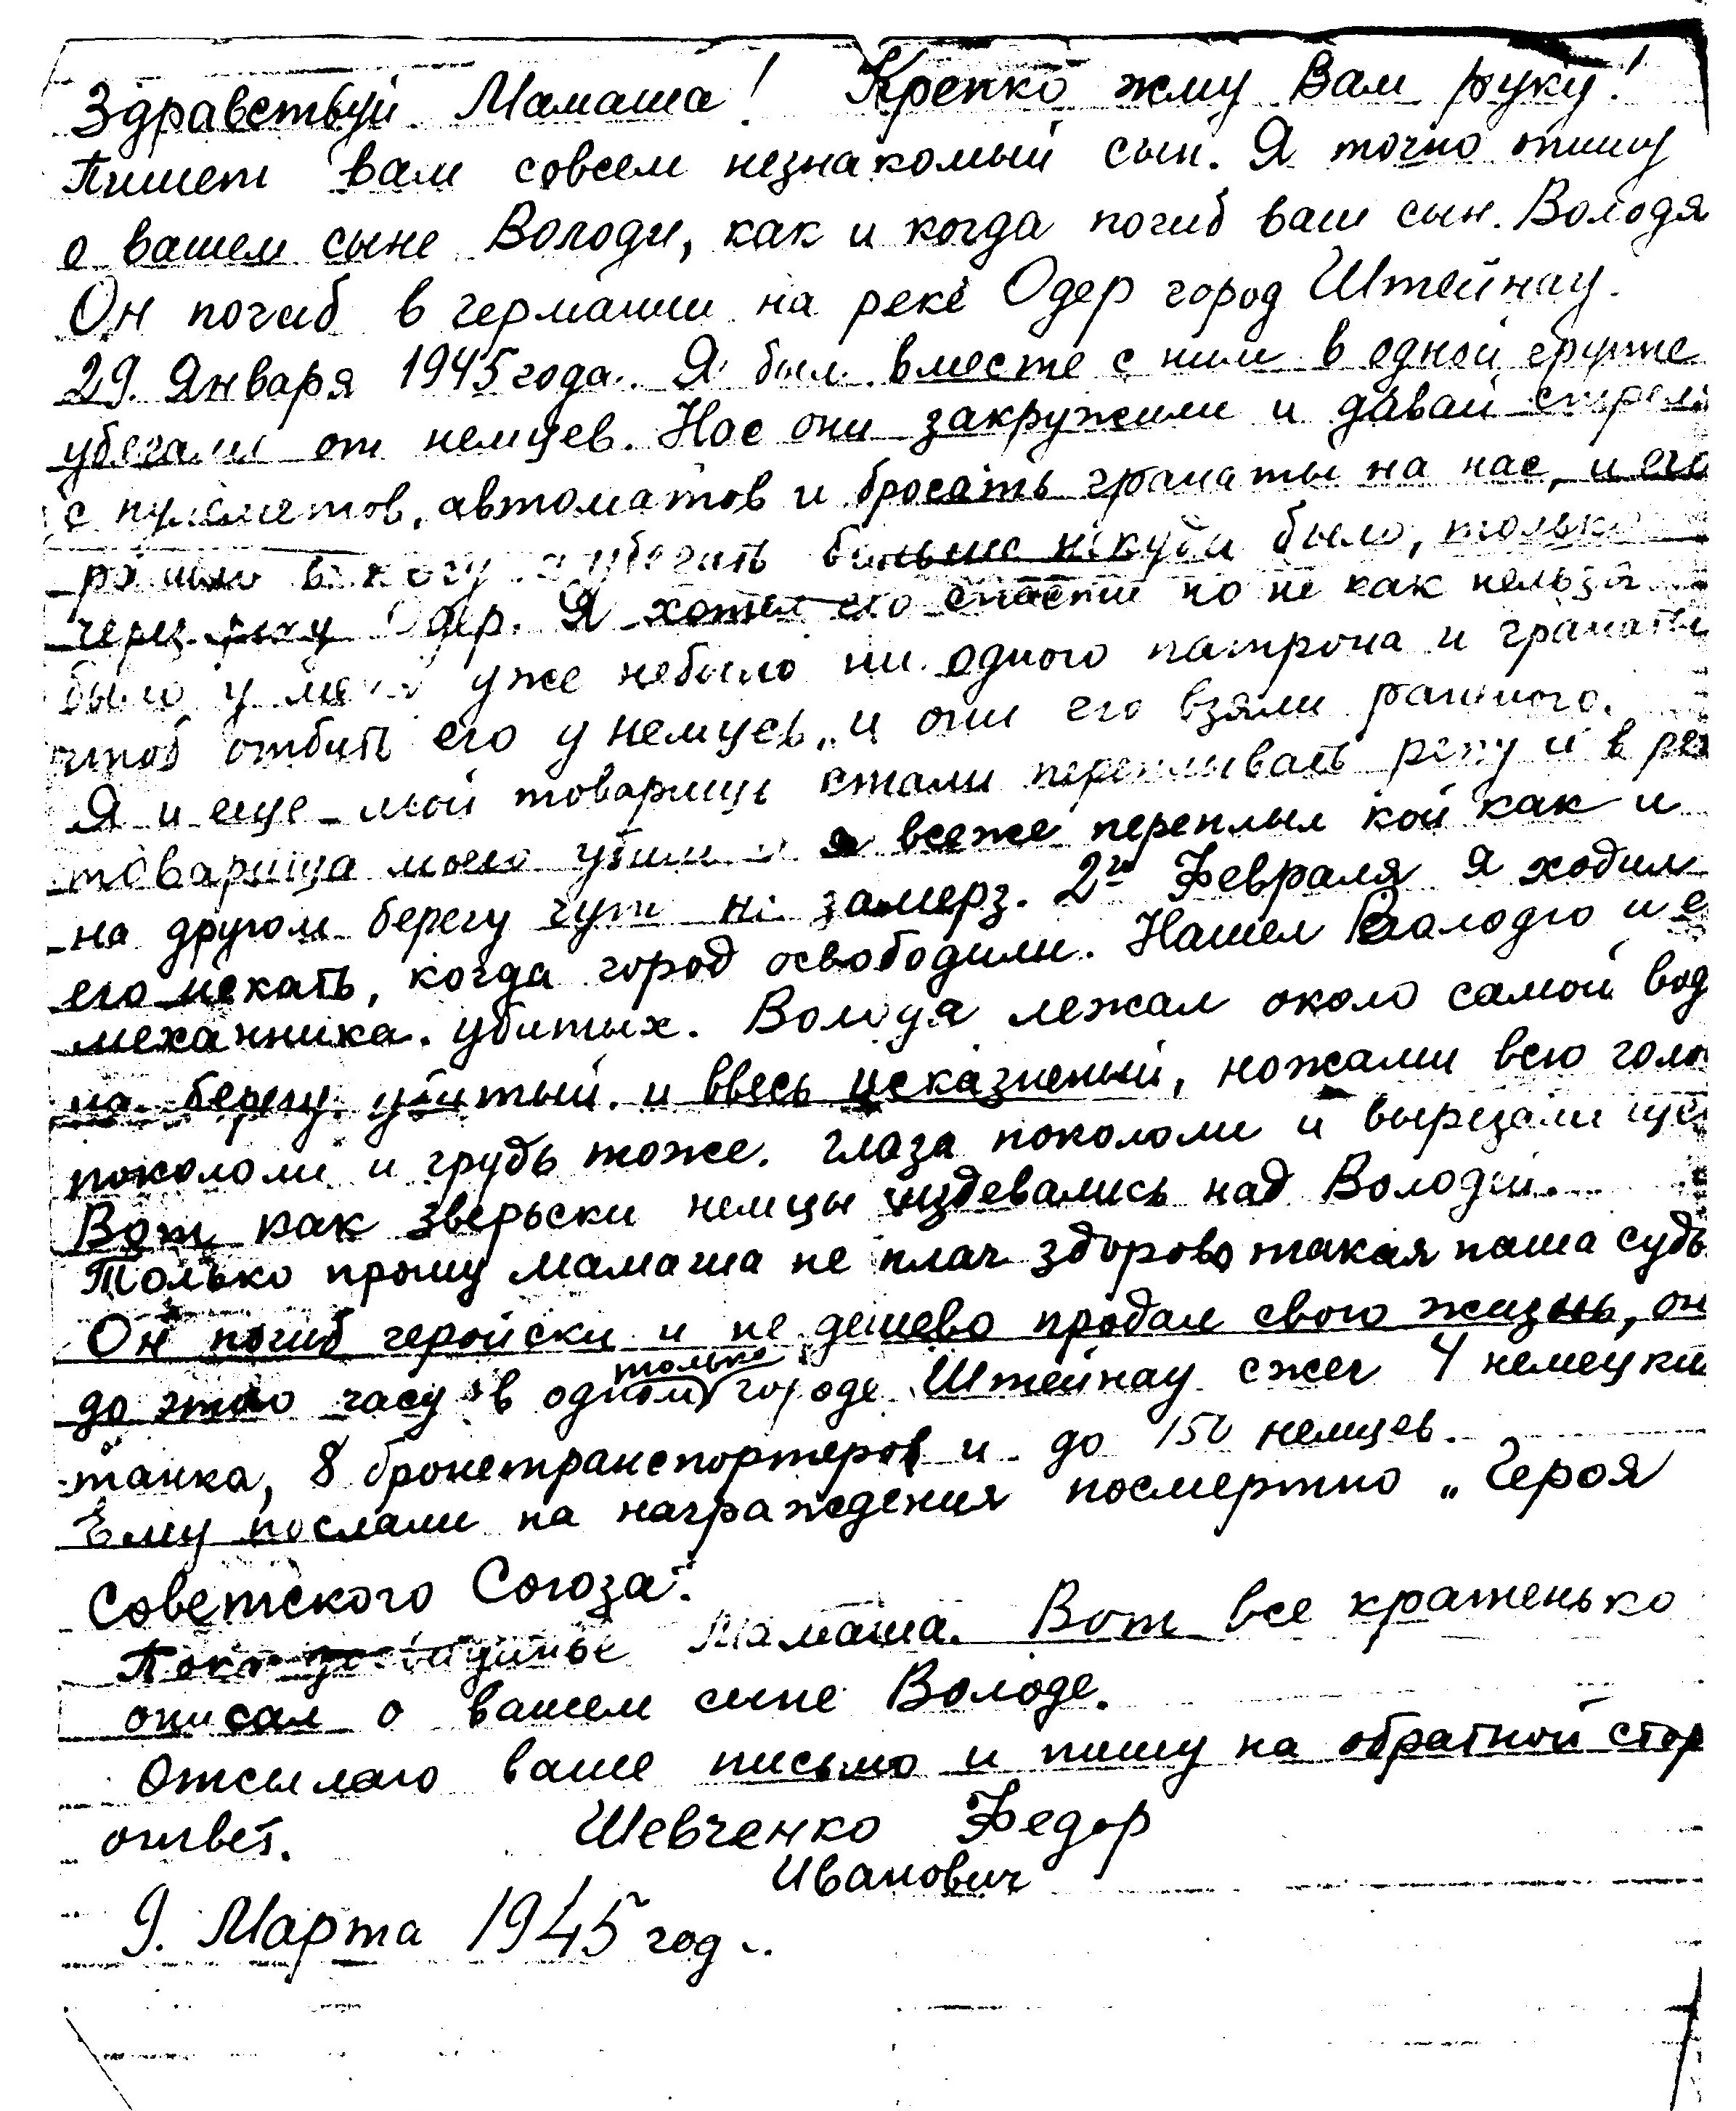 Здравствуй Мамаша! Крепко жму Вам руку!
Пишет вам совсем незнакомый сын. Я точно опишу
о вашем сыне Володи, как и когда погиб ваш сын. Володя
Он погиб в германии на реке Одер город Штейнау.
29. Января 1945 года. Я был вместе с ним в одной групе
убегали от немцев. Нас они закружили и давай стреля
с пулеметов, автоматов и бросать гранаты на нас, и его
в ногу убегать больше некуда было, только
через реку Одер. Я хотел его спасти но не как нельзя
было у меня уже небыло ни одного патрона и гранаты
чтоб отбить его у немцев, и они его взяли раненого.
Я и еще мой товарищь стали переплывать реку и в ре
товарища моего убили а я всеже переплыл кой как и
на другом берегу чуть не замерз. 2го Февраля я ходил
его искать, когда город освободили. Нашел Валодю и е
механника. убитых. Володя лежал около самой вод
на берегу убитый и ввесь исказненый, ножами всю голо
покололи и грудь тоже. глаза покололи и вырезали ще
Вот как зверьски немцы издевались над Володей.
Только прошу мамаша не плач здорово такая наша судь
Он погиб геройски и не дешево продал свою жизнь, он
до этого часу в одном только городе Штейнау сжег 4 немецки
танка, 8 бронетранспортеров и до 150 немцев.
Ему послали на награждения посмертно „Героя
Советского Союза".
Пока досвидинье Мамаша. Вот все кратенько
описал о вашем сыне Володе.
Отсылаю ваше письмо и пишу на обратной стор
ответ. Шевченко Федор
Иванович
9. Марта 1945 год..